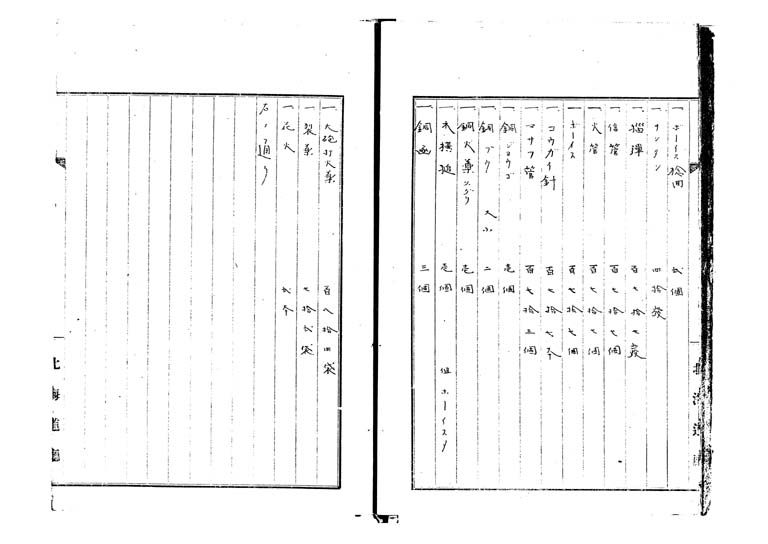 一 ホーイス捻困 弐個
一 サンタン 四拾發
一 榴弾 百七拾七發
一 信管 百七拾七個
一 火管 百七拾七個
一 ホーイス 百七拾七個
一 コウガイ針 百七拾七本
一 マサツ管 百七拾三個
一 銅ジョウゴ 壱個
一 銅フク 大小 二個
一 銅火藥 壱個
一 木横槌 壱個 但ホーイスノ
一 銅函 三個
北海道廳
一 大砲打火藥 百八拾四袋
一 裂藥 七拾弐袋
一 花火 弐本
右ノ通リ
北海道廳